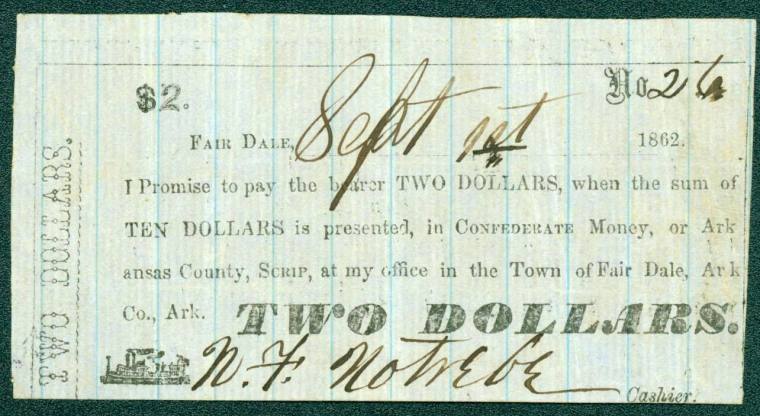 $2. No 26
FAIR DALE, Sept 1st 1862.
I Promise to pay the bearer TWO DOLLARS, when the sum of
TEN DOLLARS is presented, in CONFEDERATE Money, or Ark
ansas County, SCRIP, at my office in the Town of Fair Dale, Ark
Co., Ark. TWO DOLLARS.
N. F. Notrebe
Cashier.
TWO DOLLARS.